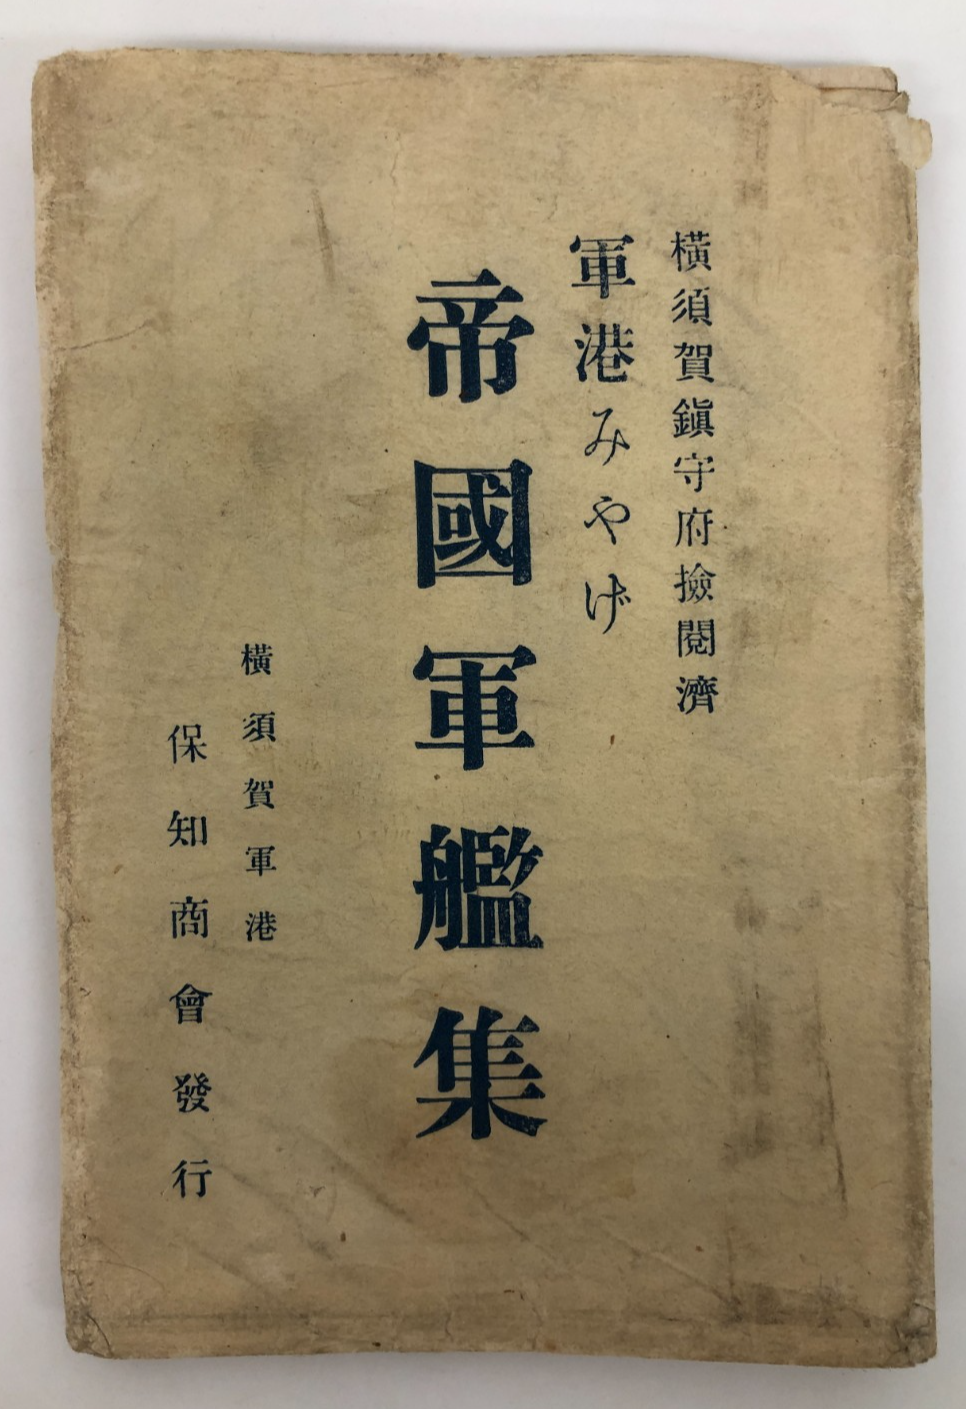 橫須賀鎭守府撿閱濟
軍港みやげ
帝國軍艦集
橫須賀軍港
保知商會發行